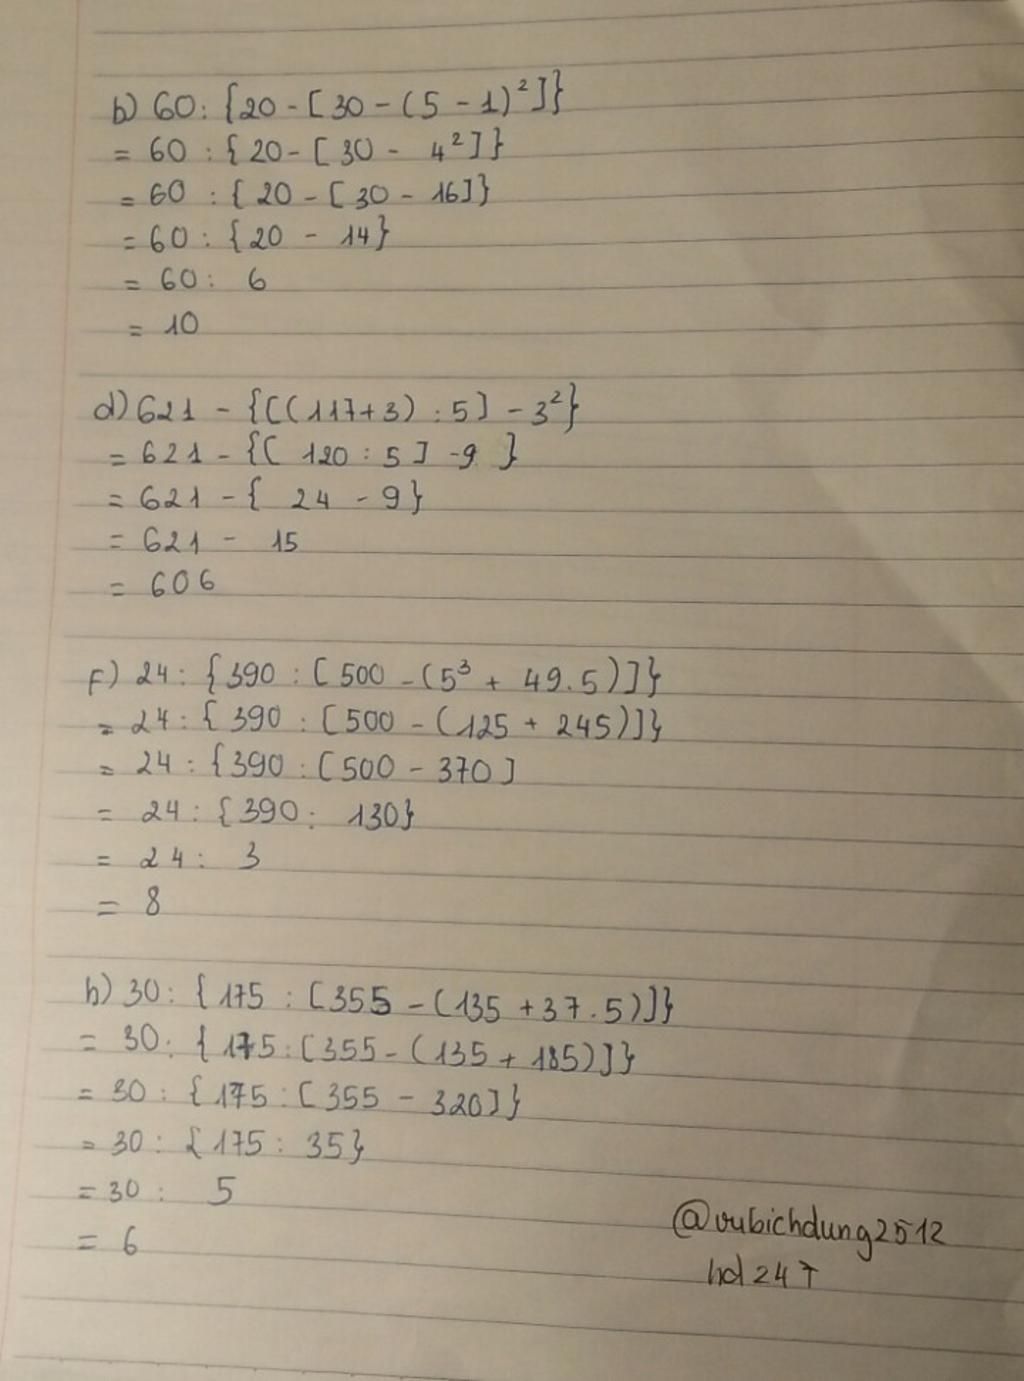 b) 60 : {20 - [30 - (5 - 1)²]}
= 60 : {20 - [30 - 4²]}
= 60 : {20 - [30 - 16]}
= 60 : {20 - 14}
= 60 : 6
= 10
d) 621 - {[(117+3) : 5] - 3²}
= 621 - {[120 : 5] - 9}
= 621 - {24 - 9}
= 621 - 15
= 606
f) 24 : {390 : [500 - (5³ + 49.5)]}
= 24 : {390 : [500 - (125 + 245)]}
= 24 : {390 : [500 - 370]
= 24 : {390 : 130}
= 24 : 3
= 8
h) 30 : {175 : [355 - (135 + 37.5)]}
= 30 : {175 : [355 - (135 + 185)]}
= 30 : {175 : [355 - 320]}
= 30 : {175 : 35}
= 30 : 5
= 6
@vubichdung2512
hd247